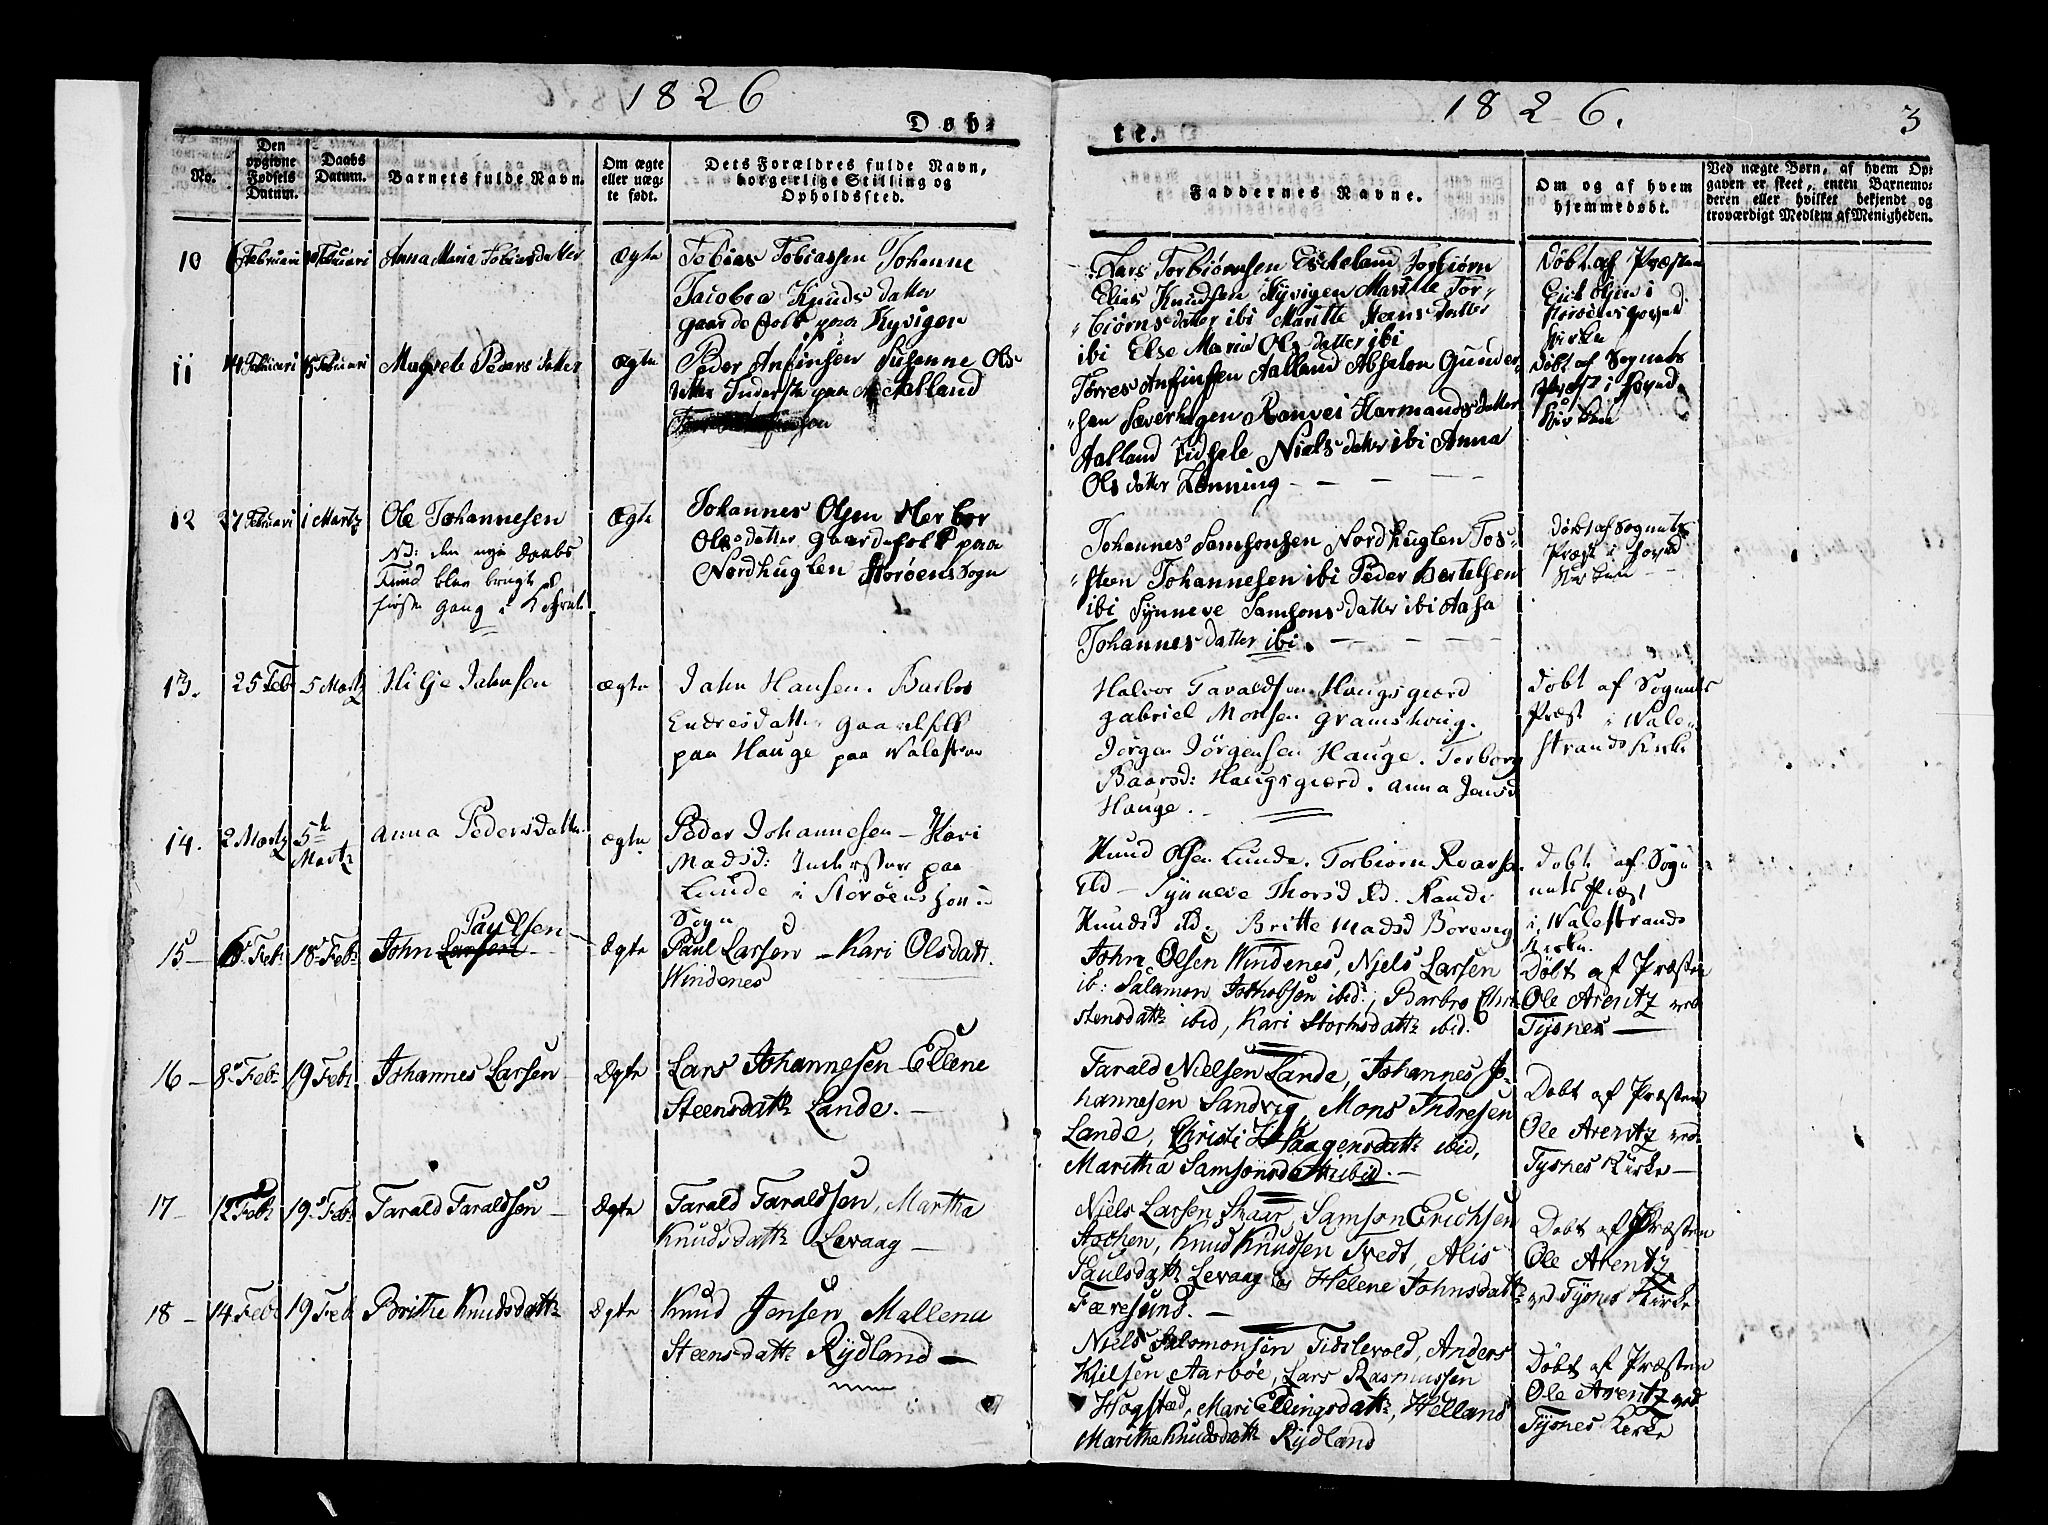 1826
1826.
3
Døb-
te.
No.
Den opgivne Fødsels Datum.
Daabs Datum.
Barnets fulde Navn.
Om ægte eller uægte født.
Dets Forældres fulde Navn, borgerlige Stilling og Opholdssted.
Faddernes Navne.
Om og af hvem hjemmedøbt.
Ved uægte Børn, af hvem Opgaven er skeet, enten Barnemoderen eller hvilket bekjendt og troværdigt Medlem af Menigheden.
10
6 Februari
Februari
Anna Maria Tobiasdatter
Ægte
Tobias Tobiassen Johanne
Jacobea Knuds datter
gaardefolk paa Kyvigen
Lars Torbiørnsen Eskeland Torbiørn
Elias Knudsen Kyvigen Maritte Tor-
biørnsdatter ibi Maritte Steens datter
ibi Else Maria Olsdatter ibi
Døbt af Præsten
11
14 Februari
15 Februari
Magrete Peders datter
Ægte
Peder Anfinsen Susanne Ols
datter Inderste paa Aalland
Torres Anfinsen Aalland Absalon Gunder-
sen Sæverhagen Ranvei Hermandsdatter
Aalland Zidsele Nielsdatter ibi Anna
Olsdatter Lønning
Døbt af Sognets
Præst i Hoved
Kirken
12
27 Februari
1 Martz
Ole Johannesen
Ægte
Johannes Olsen Herbor
Olsdatter Gaardefolk paa
Nordhuglen Storøens Sogn
Johannes Samsonsen Nordhuglen Tos-
steen Johannesen ibi Peder Bertelsen
ibi Synneve Samsons datter ibi Aasa
Johannes datter ibi.
Døbt af Sognets
Præst i Hoved
Kirken
13.
25 Feb
5 Martz
Hilje Jahnsen
ægte
Jahn Hansen. Barbro
Endresdatter Gaardfolk
paa Hauge paa Walestran
Halvor Taraldsen Haugsgierd
Gabriel Monsen Gramshaug.
Jørgen Jørgensen Hauge. Torborg
Baarsd: Haugsgierd. Anna Jensd
Hauge.
Døbt af Sognets
Præst i Wale-
strands Kirke
14.
2 Martz
5te
Martz
Anna Pedersdatter
ægte
Peder Johannesen - Kari
Madsd: Inderster paa
Lunde i Storøens
Sogn
Knud Olsen Lunde. Torbiørn Roars
Ild - Synneve Thorsd Ild. Rande
Knudsd Ild. Britte Madsd Borevig
Døbt af Sog-
nets Præst
i Walestrands
Kirke.
15 -
6 Feb:
18 Feb:
Paulsen
John Larsen
Ægte
Paul Larsen - Kari Olsdatt.
Windenes
John Olsen Windenes, Niels Larsen
ib: Salamon Jochobsen ibid:, Barbro Chri-
stensdattr ibid, Kari Storksdattr ibid.
Døbt af Præsten
Ole Arentz ved
Tysnes -
16 -
8 Feb:
19 Feb:
Johannes Larsen
Ægte
Lars Johannesen - Ellene
Steensdattr Lande. -
Tarald Nielsen Lande, Johannes Jo-
hannesen Sandvig, Mons Indresen
Lande, Christi Haagensdattr ibid,
Maritha Samsonsdattr ibid. -
Døbt af Præsten
Ole Arentz ved
Tysnes Kirke -
17 -
12 Feb:
19 Feb:
Tarald Taraldsen -
Ægte
Tarald Taraldsen, Martha
Knudsdattr Levaag -
Niels Larsen Skaar, Samson Erichsen
Aschen, Knud Knudsen Tvedt, Alis
Paulsdattr Levaag og Helene Johnsdattr
Færesund. -
Døbt af Præsten
Ole Arentz
ved Tysnes Kirke
18 -
14 Feb:
19 Feb
Brithe Knudsdattr
Ægte
Knud Jensen Mallena
Steensdattr Rydland -
Niels Salomonsen Tidslevold, Anders
Kielsen Aarbøe, Lars Rasmussen
Høgstæd, Mari Ellingsdattr, Helland
Marithe Knudsdattr Rydland
Døbt af Præsten
Ole Arentz ved
Tysnes Kirke